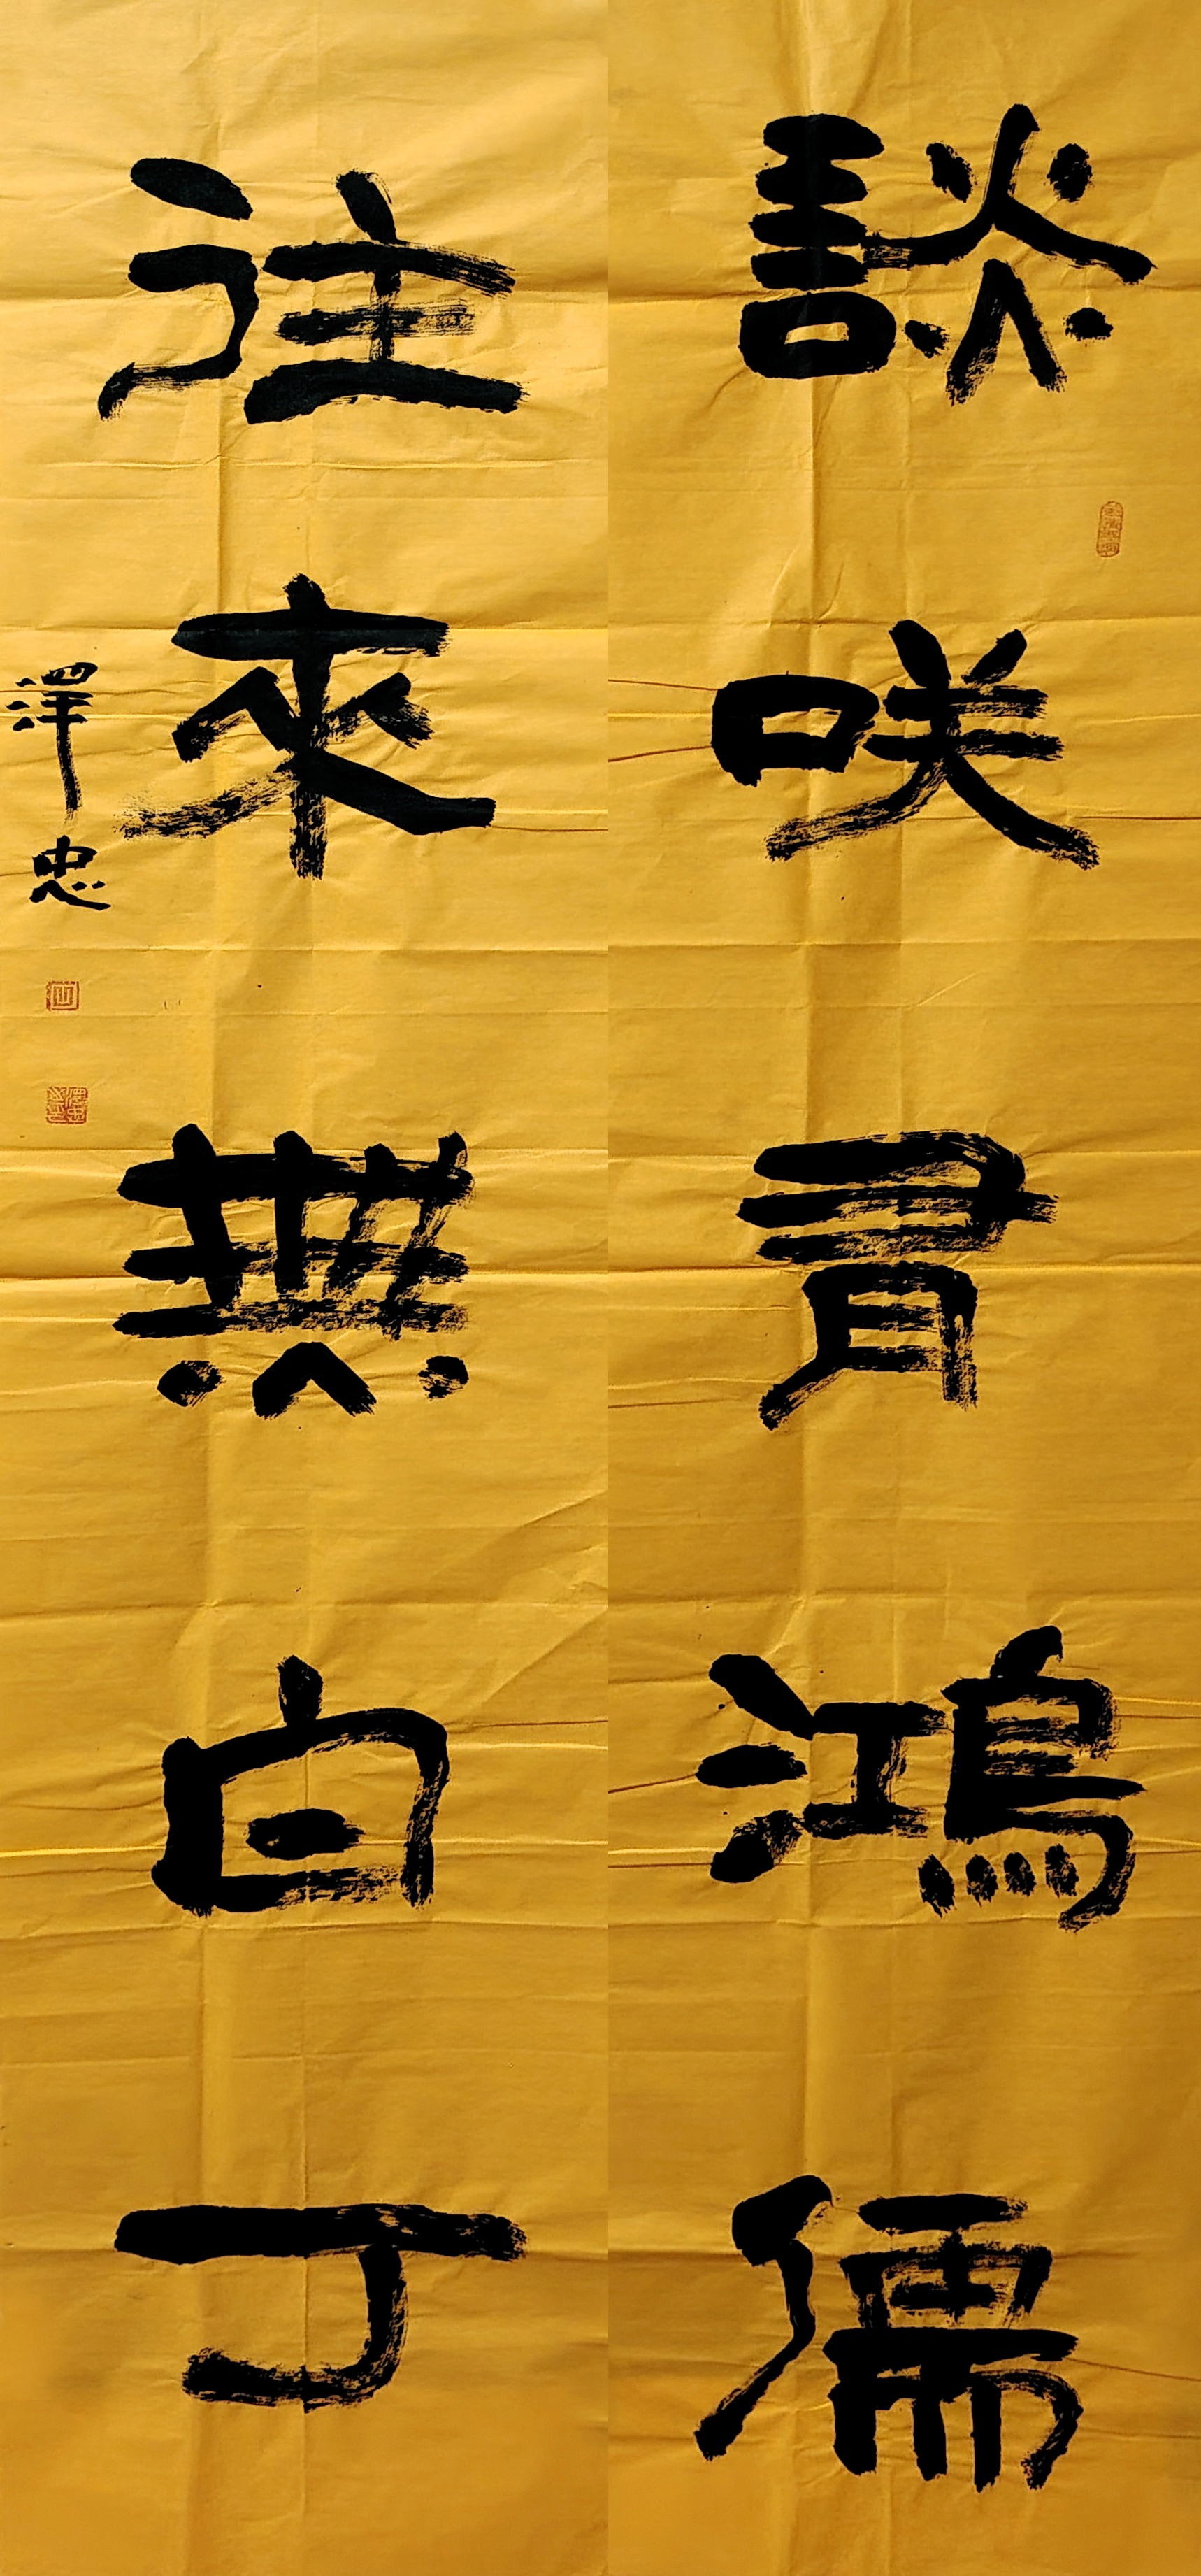 談咲有鴻儒
往來無白丁
澤忠